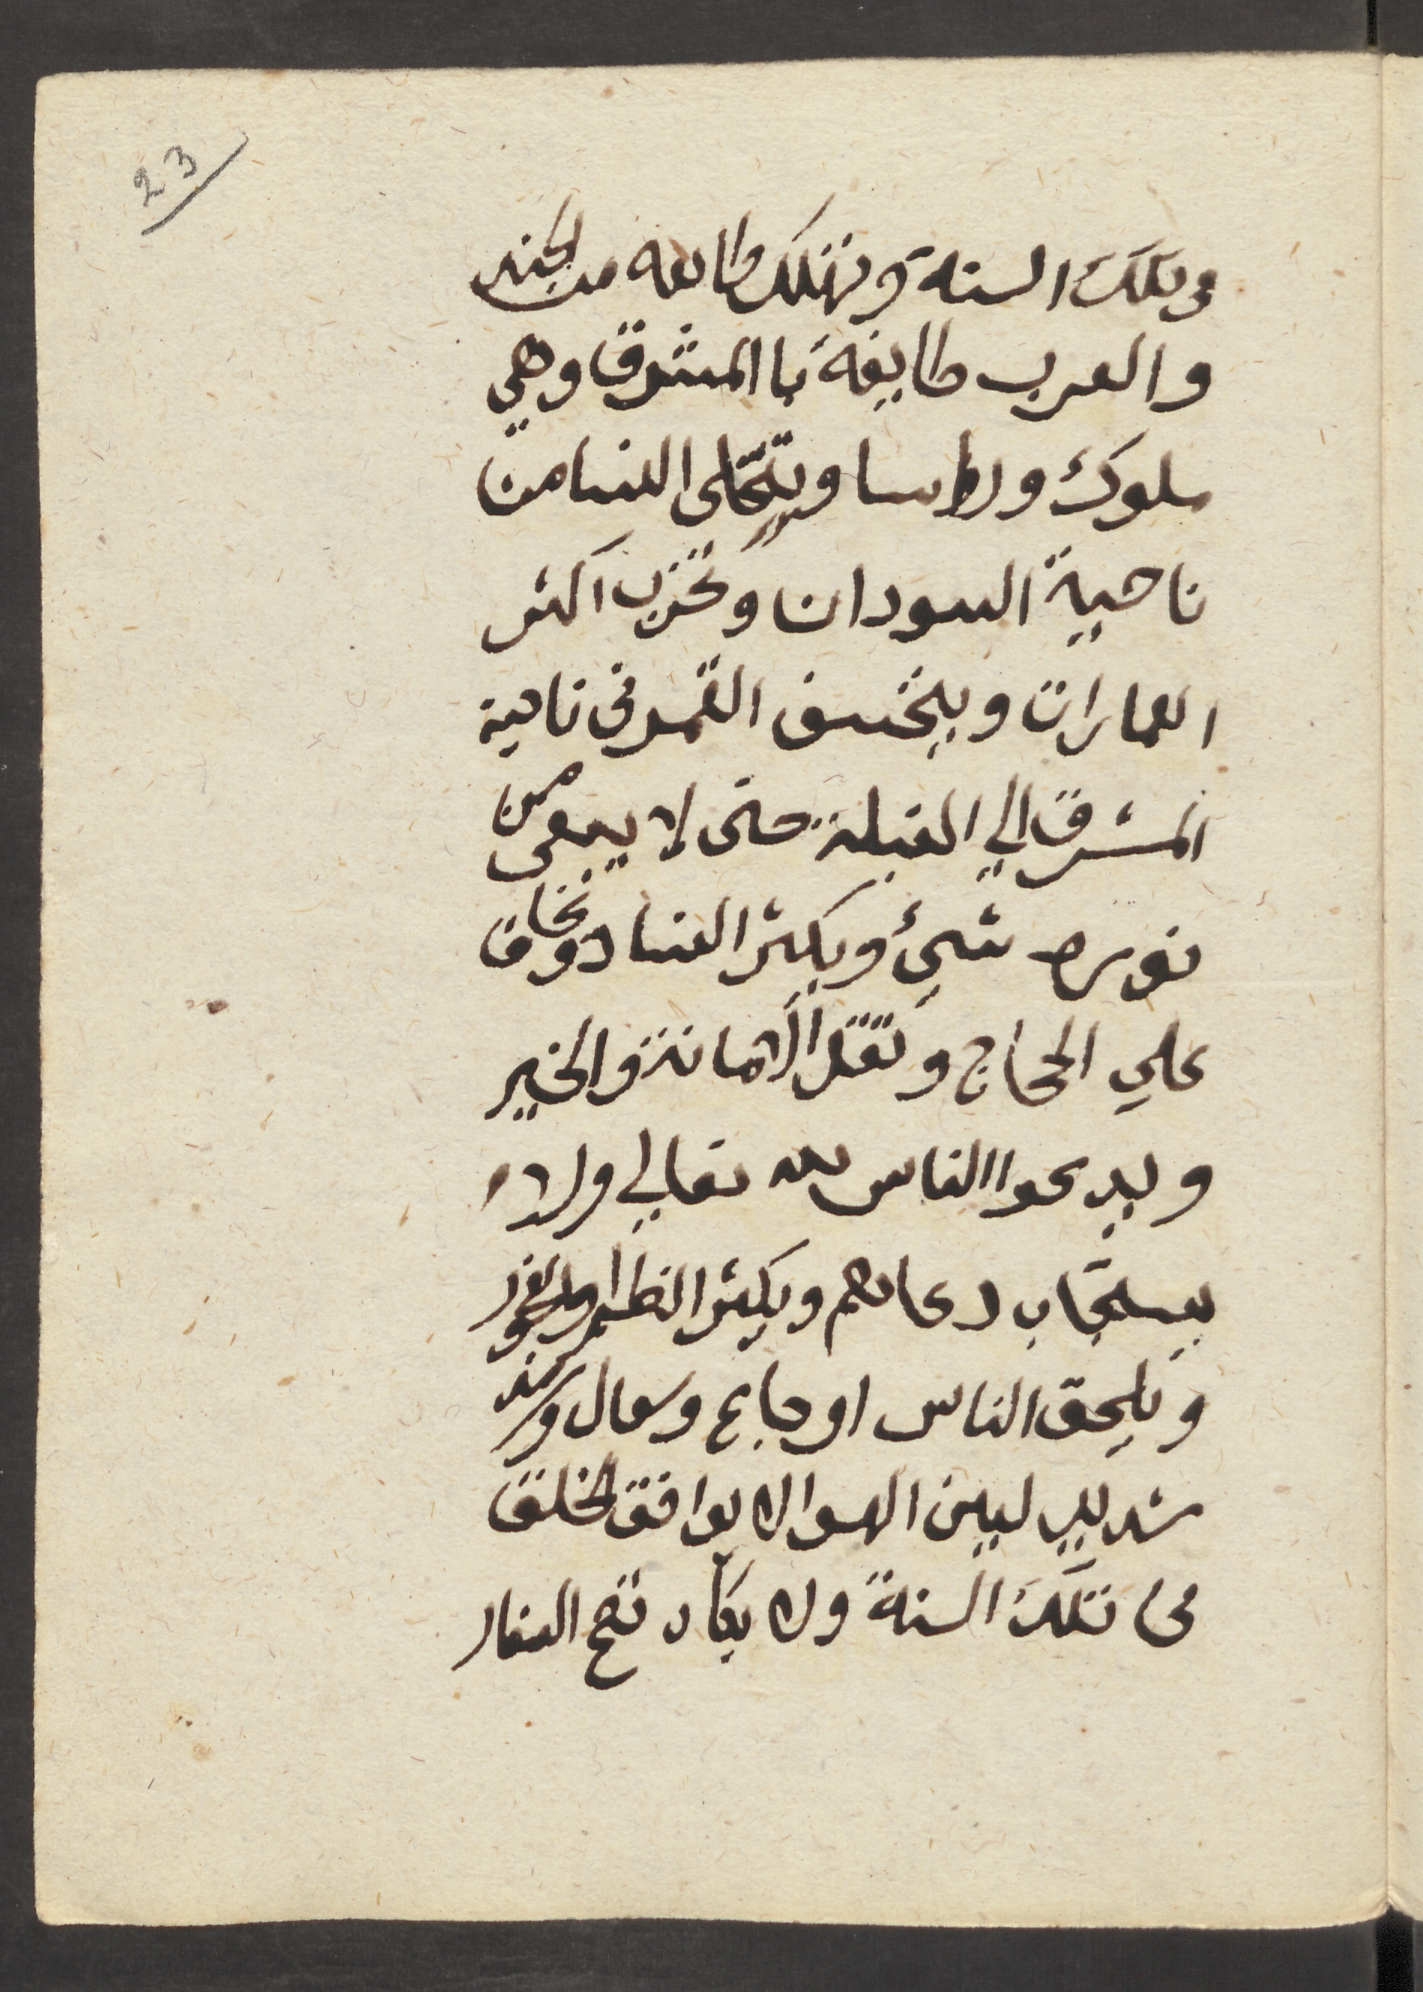 23
في تلك السنة وتهلك طايفه من الجند
والعرب طايفة باالمشرق وهي
ملوك وراسا ويتحلى النسا من
ناحية السودان وتخرب اكثر
العمارات وينخسف القمر في ناحية
المشرق الي القبلة حتى لا يبقى من
نوره شئ ويكثر الفساد ويخاف
علي الحجاج وتقل الامانة والخير
ويدعوا الناس لله تعالي ولا
يستجاب دعاهم ويكثر الظلم والجور
ويلحق الناس اوجاع وسعال ورمد
شديد لين الهوا لا يوافق الخلق
في تلك السنة ولا يكاد تقح العقار